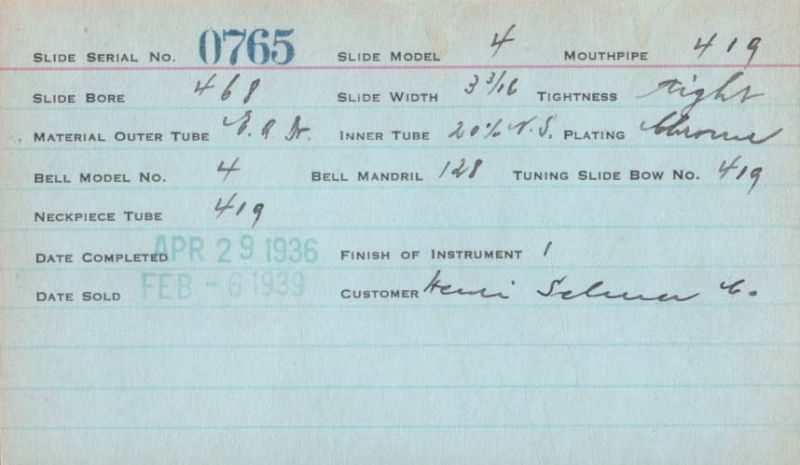 SLIDE SERIAL NO. 0765 SLIDE MODEL 4 MOUTHPIPE 419
SLIDE BORE 468 SLIDE WIDTH 3 3/16 TIGHTNESS Tight
MATERIAL OUTER TUBE INNER TUBE 20% N.S. PLATING Chrome
BELL MODEL NO. 4 BELL MANDRIL 128 TUNING SLIDE BOW NO. 419
NECKPIECE TUBE 419
DATE COMPLETED APR 29 1936 FINISH OF INSTRUMENT 1
DATE SOLD FEB -6 1939 CUSTOMER Henri Selmer Co.